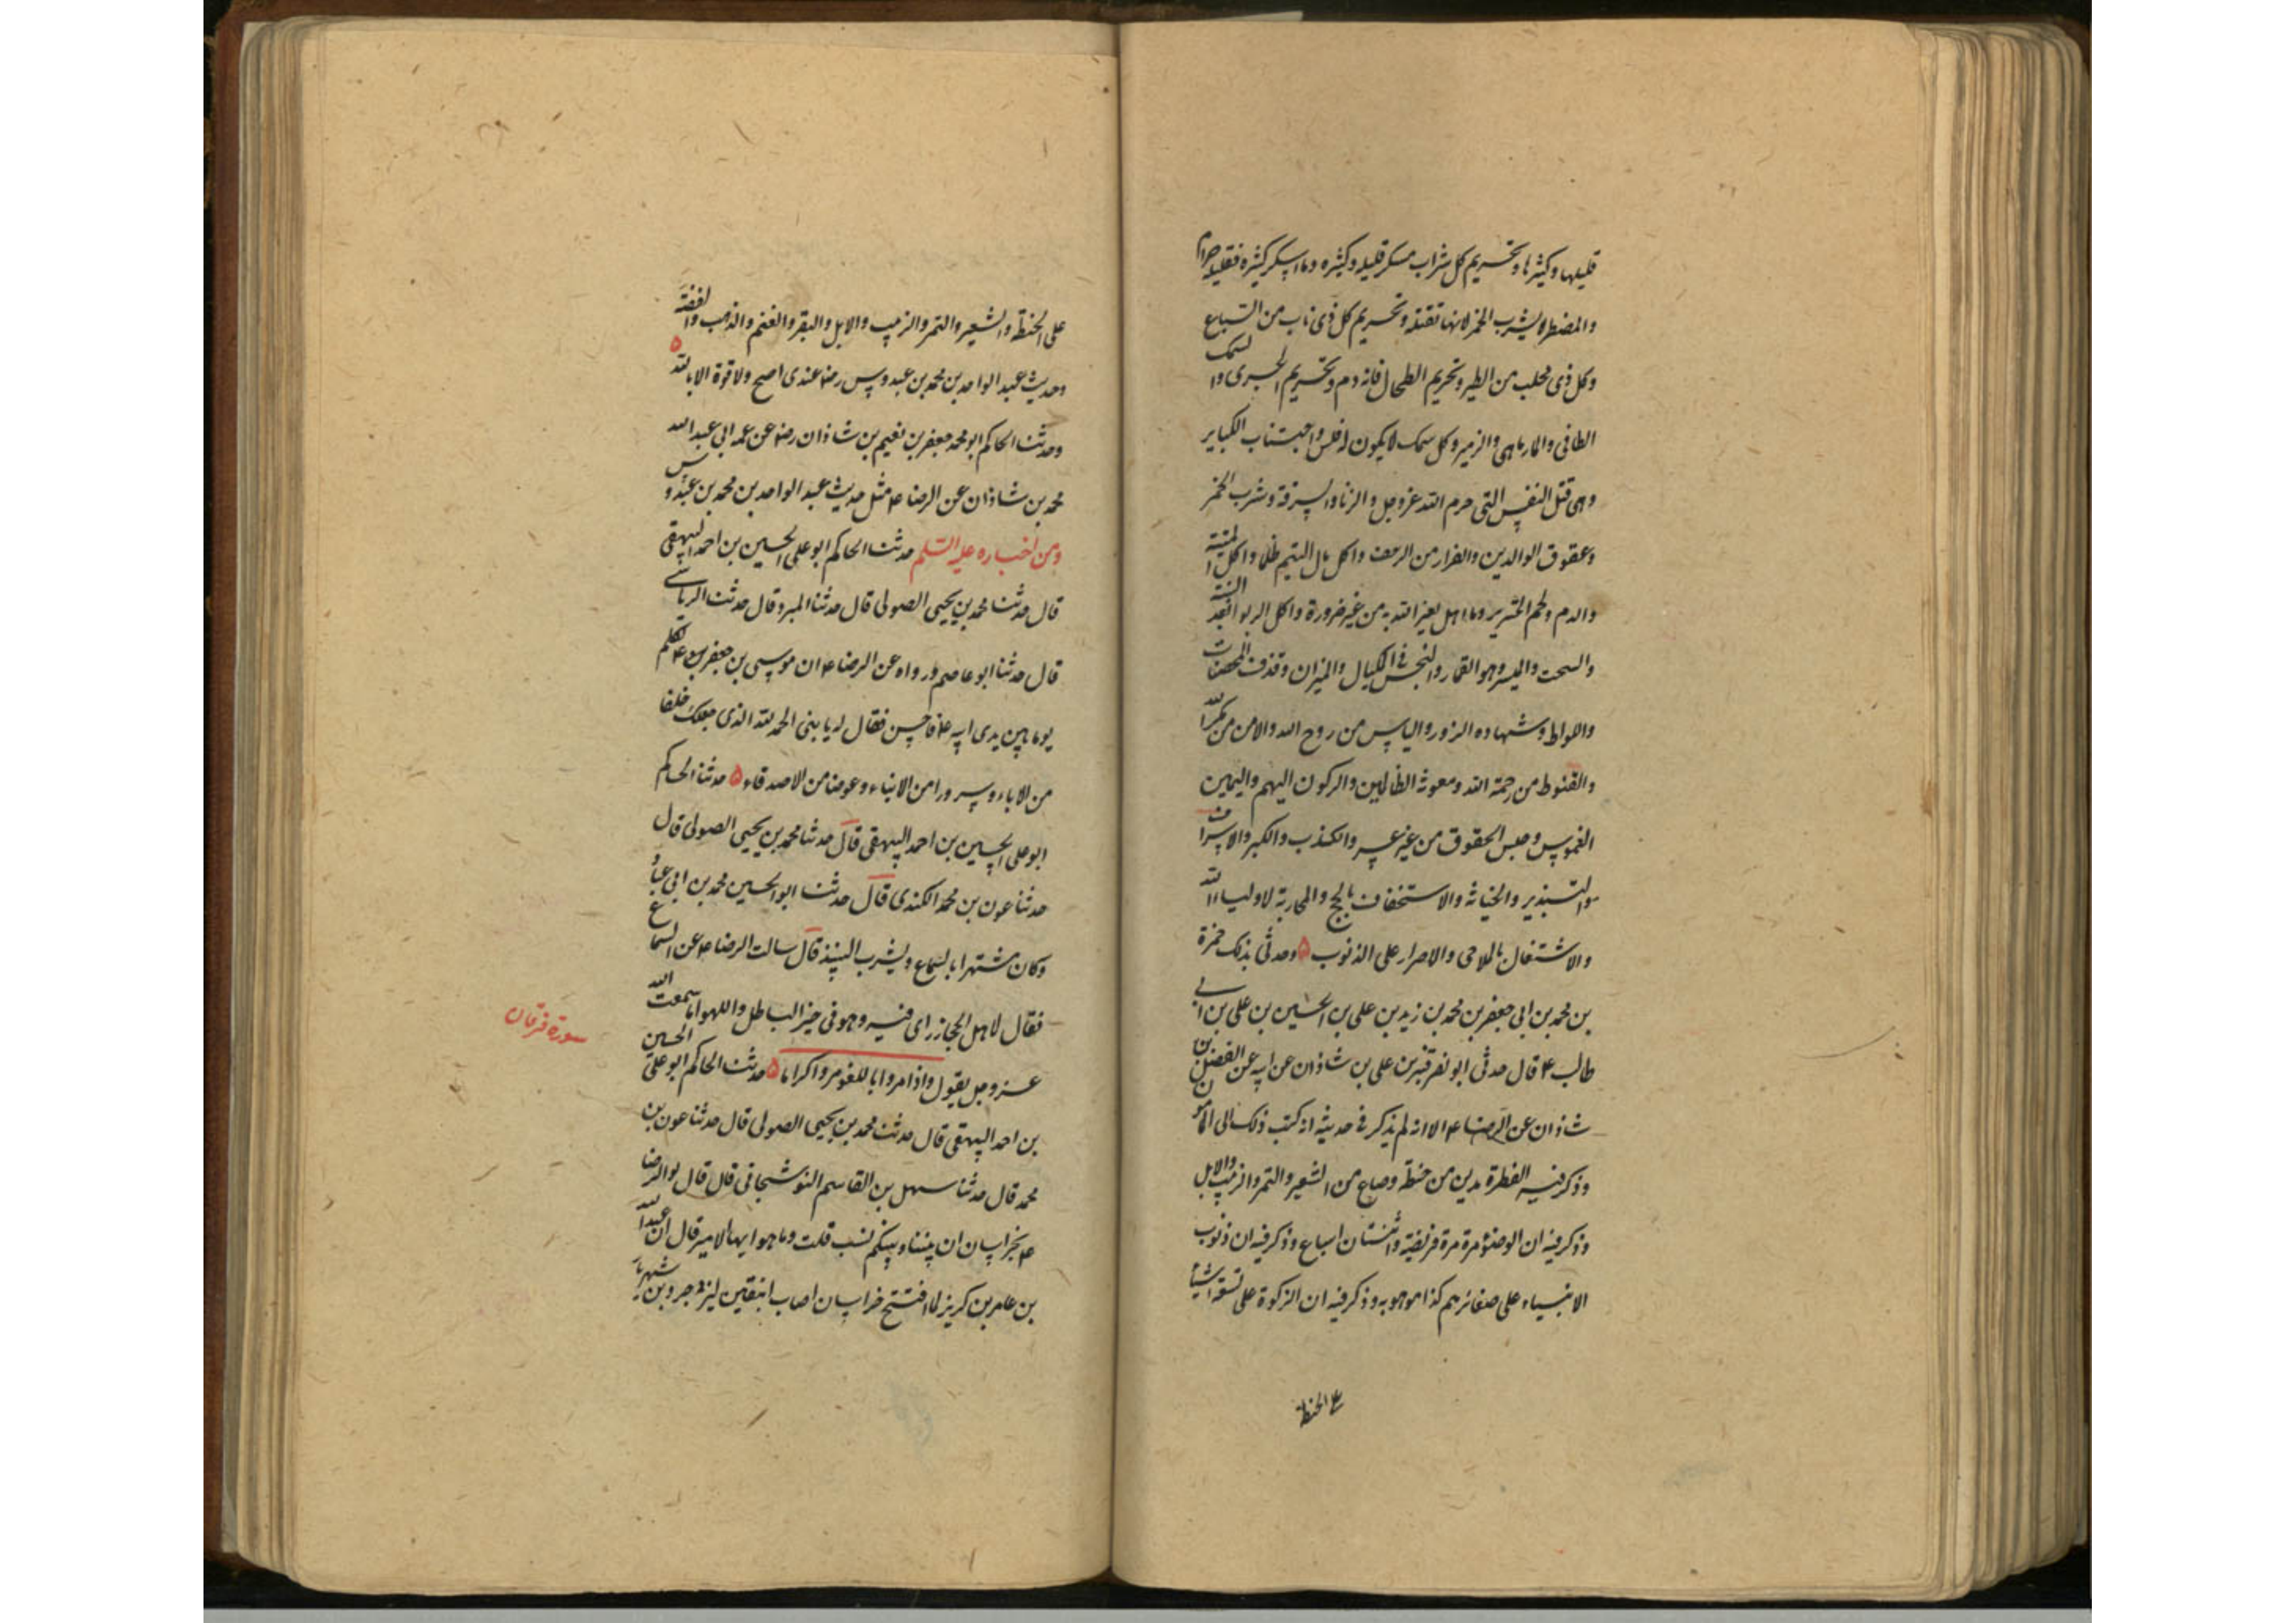 قليلها وكثيرها وتحريم كل شراب مسكر قليله وكثيره وما اسكر كثيره فقليله حرام
والمضطر لا يشرب الخمر لانها تقتله وتحريم كل ذى ناب من السباع
وكل ذى مخلب من الطير وتحريم الطحال فانه دم وتحريم الجرى والسمك
الطافى والمارماهى والزمير وكل سمك لا يكون له فلس واجتناب الكباير
وهى قتل النفس التى حرم الله عز وجل والزنا والسرقة وشرب الخمر
وعقوق الوالدين والفرار من الزحف واكل مال اليتيم ظلما واكل الميتة
والدم ولحم الخنزير وما اهل لغير الله به من غير ضرورة واكل الربوا بعد البينة
والسحت والميسر وهو القمار والبخس فى المكيال والميزان وقذف المحصنات
واللواط وشهاده الزور والياس من روح الله والامن من مكر الله
والقنوط من رحمة الله ومعونة الظالمين والركون اليهم واليمين
الغموس وحبس الحقوق من غير عسر والكذب والكبر والاسراف
والتبذير والخيانة والاستخفاف بالحج والمحاربة لاولياء الله
والاشتغال بالملاهى والاصرار على الذنوب ۵ وحدثنى بذلك حمزة
بن محمد بن ابى جعفر بن محمد بن زيد بن على بن الحسين بن على بن ابى
طالب ع قال حدثنى ابو نصر قنبر بن على بن شاذان عن ابيه عن الفضل بن
شاذان عن الرضا ع الا انه لم يذكر فى حديثه انه كتب ذلك الى المامون
وذكر فيه الفطرة مدين من حنطة وصاع من الشعير والتمر والزبيب والابل
وذكر فيه ان الوضوء مرة مرة فريضة واثنتان اسباغ وذكر فيه ان ذنوب
الانبياء على صغائرهم كذا موهوبه وذكر فيه ان الزكوة على تسعة اشياء
ع الحنطة
على الحنطة والشعير والتمر والزبيب والابل والبقر والغنم والذهب والفضة
وحديث عبد الواحد بن محمد بن عبدوس رضه عندى اصح ولا قوة الا بالله ۵
وحدثنا الحاكم ابو محمد جعفر بن نعيم بن شاذان رضه عن عمه ابى عبد الله
محمد بن شاذان عن الرضا ع مثل حديث عبد الواحد بن محمد بن عبدوس
ومن اخباره عليه السلم حدثنا الحاكم ابو على الحسين بن احمد البيهقى
قال حدثنا محمد بن يحيى الصولى قال حدثنا المبرد قال حدثنا الرياشى
قال حدثنا ابو عاصم ورواه عن الرضا ع ان موسى بن جعفر ع تكلم
يوما بين يدى ابيه ع فاحسن فقال له يا بنى الحمد لله الذى جعلك خلفا
من الاباء وسرورا من الابناء وعوضا من الاصدقاء ۵ حدثنا الحاكم
ابو على الحسين بن احمد البيهقى قال حدثنا محمد بن يحيى الصولى قال
حدثنا عون بن محمد الكندى قال حدثنا ابو الحسين محمد بن ابى عباد
وكان مشتهرا بالسماع ويشرب النبيذ قال سالت الرضا ع عن السماع
فقال لاهل الحجاز راى فيه وهو فى حيز الباطل واللهو اما سمعت الله
عز وجل يقول واذا مروا باللغو مروا كراما ۵ حدثنا الحاكم ابو على الحسين
سورة فرقان
بن احمد البيهقى قال حدثنا محمد بن يحيى الصولى قال حدثنا عون بن
محمد قال حدثنا سهل بن القاسم النوشجانى قال قال لى الرضا
ع بخراسان ان بيننا وبينكم نسب قلت وما هو ايها الامير قال ان عبد الله
بن عامر بن كريز لما افتتح خراسان اصاب ابنتين ليزدجرد بن شهريار